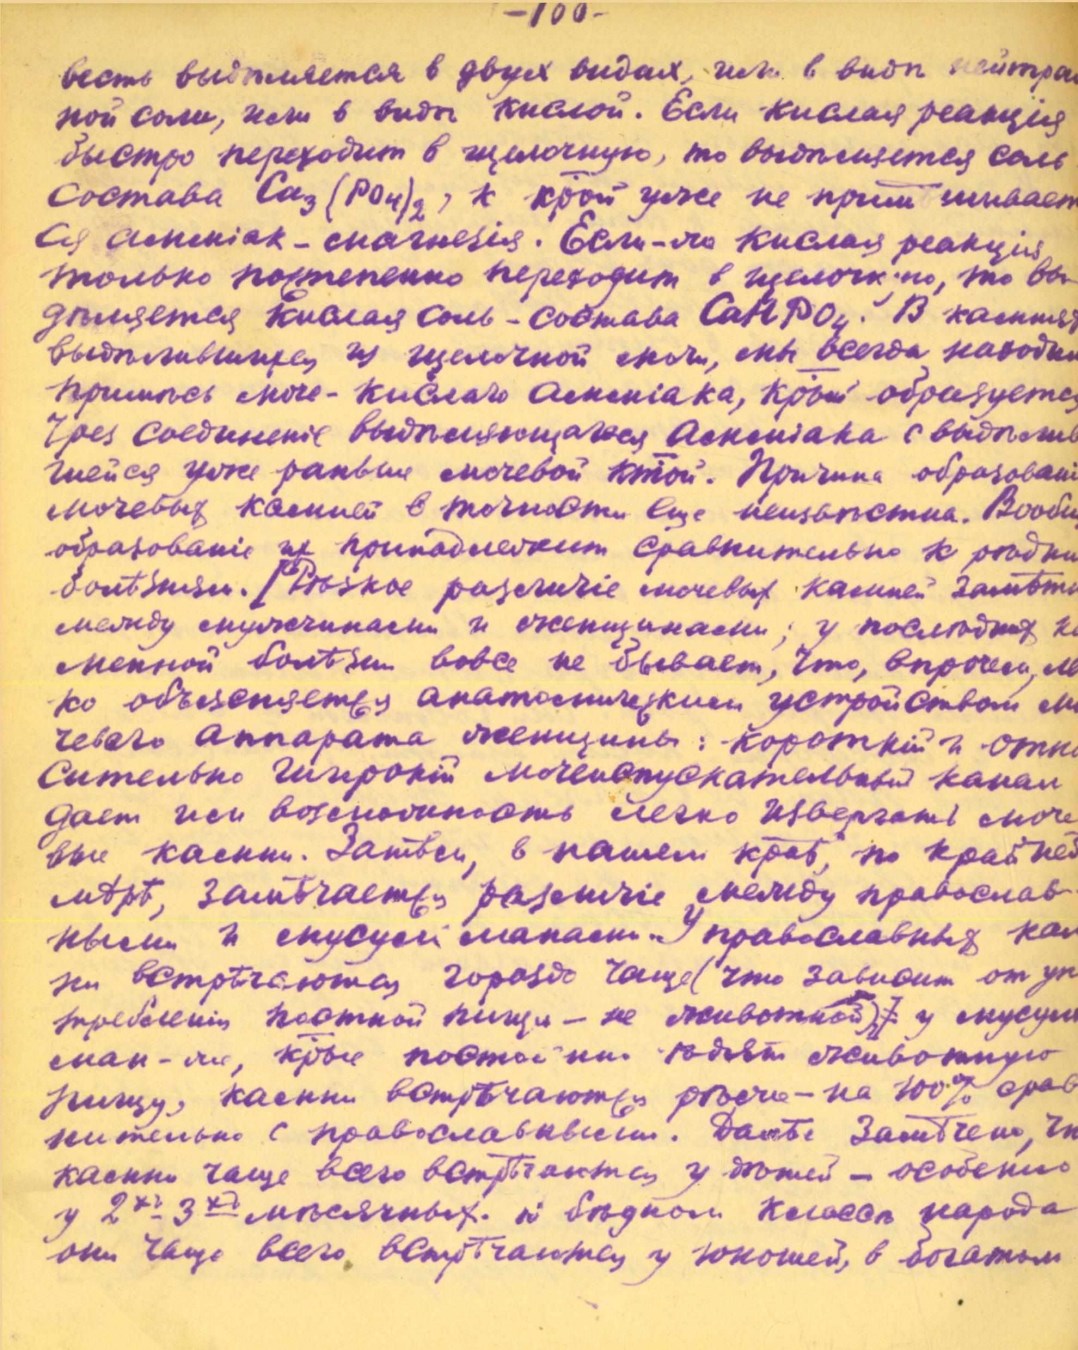 -100-
весть выдѣляется в двух видах, или в видѣ нейтрал
ной соли, или в видѣ кислой. Если кислая реакція
быстро переходит в щелочную, то выдѣляется соль
состава Ca3(PO4)2, к крой уже не примѣшивает
ся амміак-магнезія. Если-же кислая реакція
только постепенно переходит в щелочную, то вы-
дѣляется кислая соль - состава CaHPO4. В камнях
выдѣлившихся из щелочной мочи, мы всегда находим
примѣсь моче-кислаго амміака, крый образуется
чрез соединеніе выдѣляющагося амміака с выдѣлив
шейся уже раньше мочевой ктой. Причина образовані
мочевых камней в точности еще неизвѣстна. Вообще
образованіе их принадлежит сравнительно к рѣдким
болѣзням. [Рѣзкое различіе мочевых камней замѣтно
между мужчинами и женщинами; у послѣдних ка
менной болѣзни вовсе не бывает, что, впрочем, лег
ко объясняется анатомическим устройством мо
чеваго аппарата женщины: короткій и отно
сительно широкій мочеиспускательный канал
дает им возможность легко извергать моче
вые камни. Затѣм, в нашем краѣ, по крайней
мѣрѣ, замѣчается различіе между православ-
ными и мусульманами. У православных кам
ни встрѣчаются гораздо чаще (что зависит от уп
требленія постной пищи - не животной), у мусуль
ман-же, крые постоянно ѣдят животную
пищу, камни встрѣчаются рѣже - на 100% срав
нительно с православными. Далѣе замѣчено, что
камни чаще всего встрѣчаются у дѣтей - особенно
у 2хъ-3хъ мѣсячных. В бѣдном классѣ народа
они чаще всего встрѣчаются у юношей, в богатом